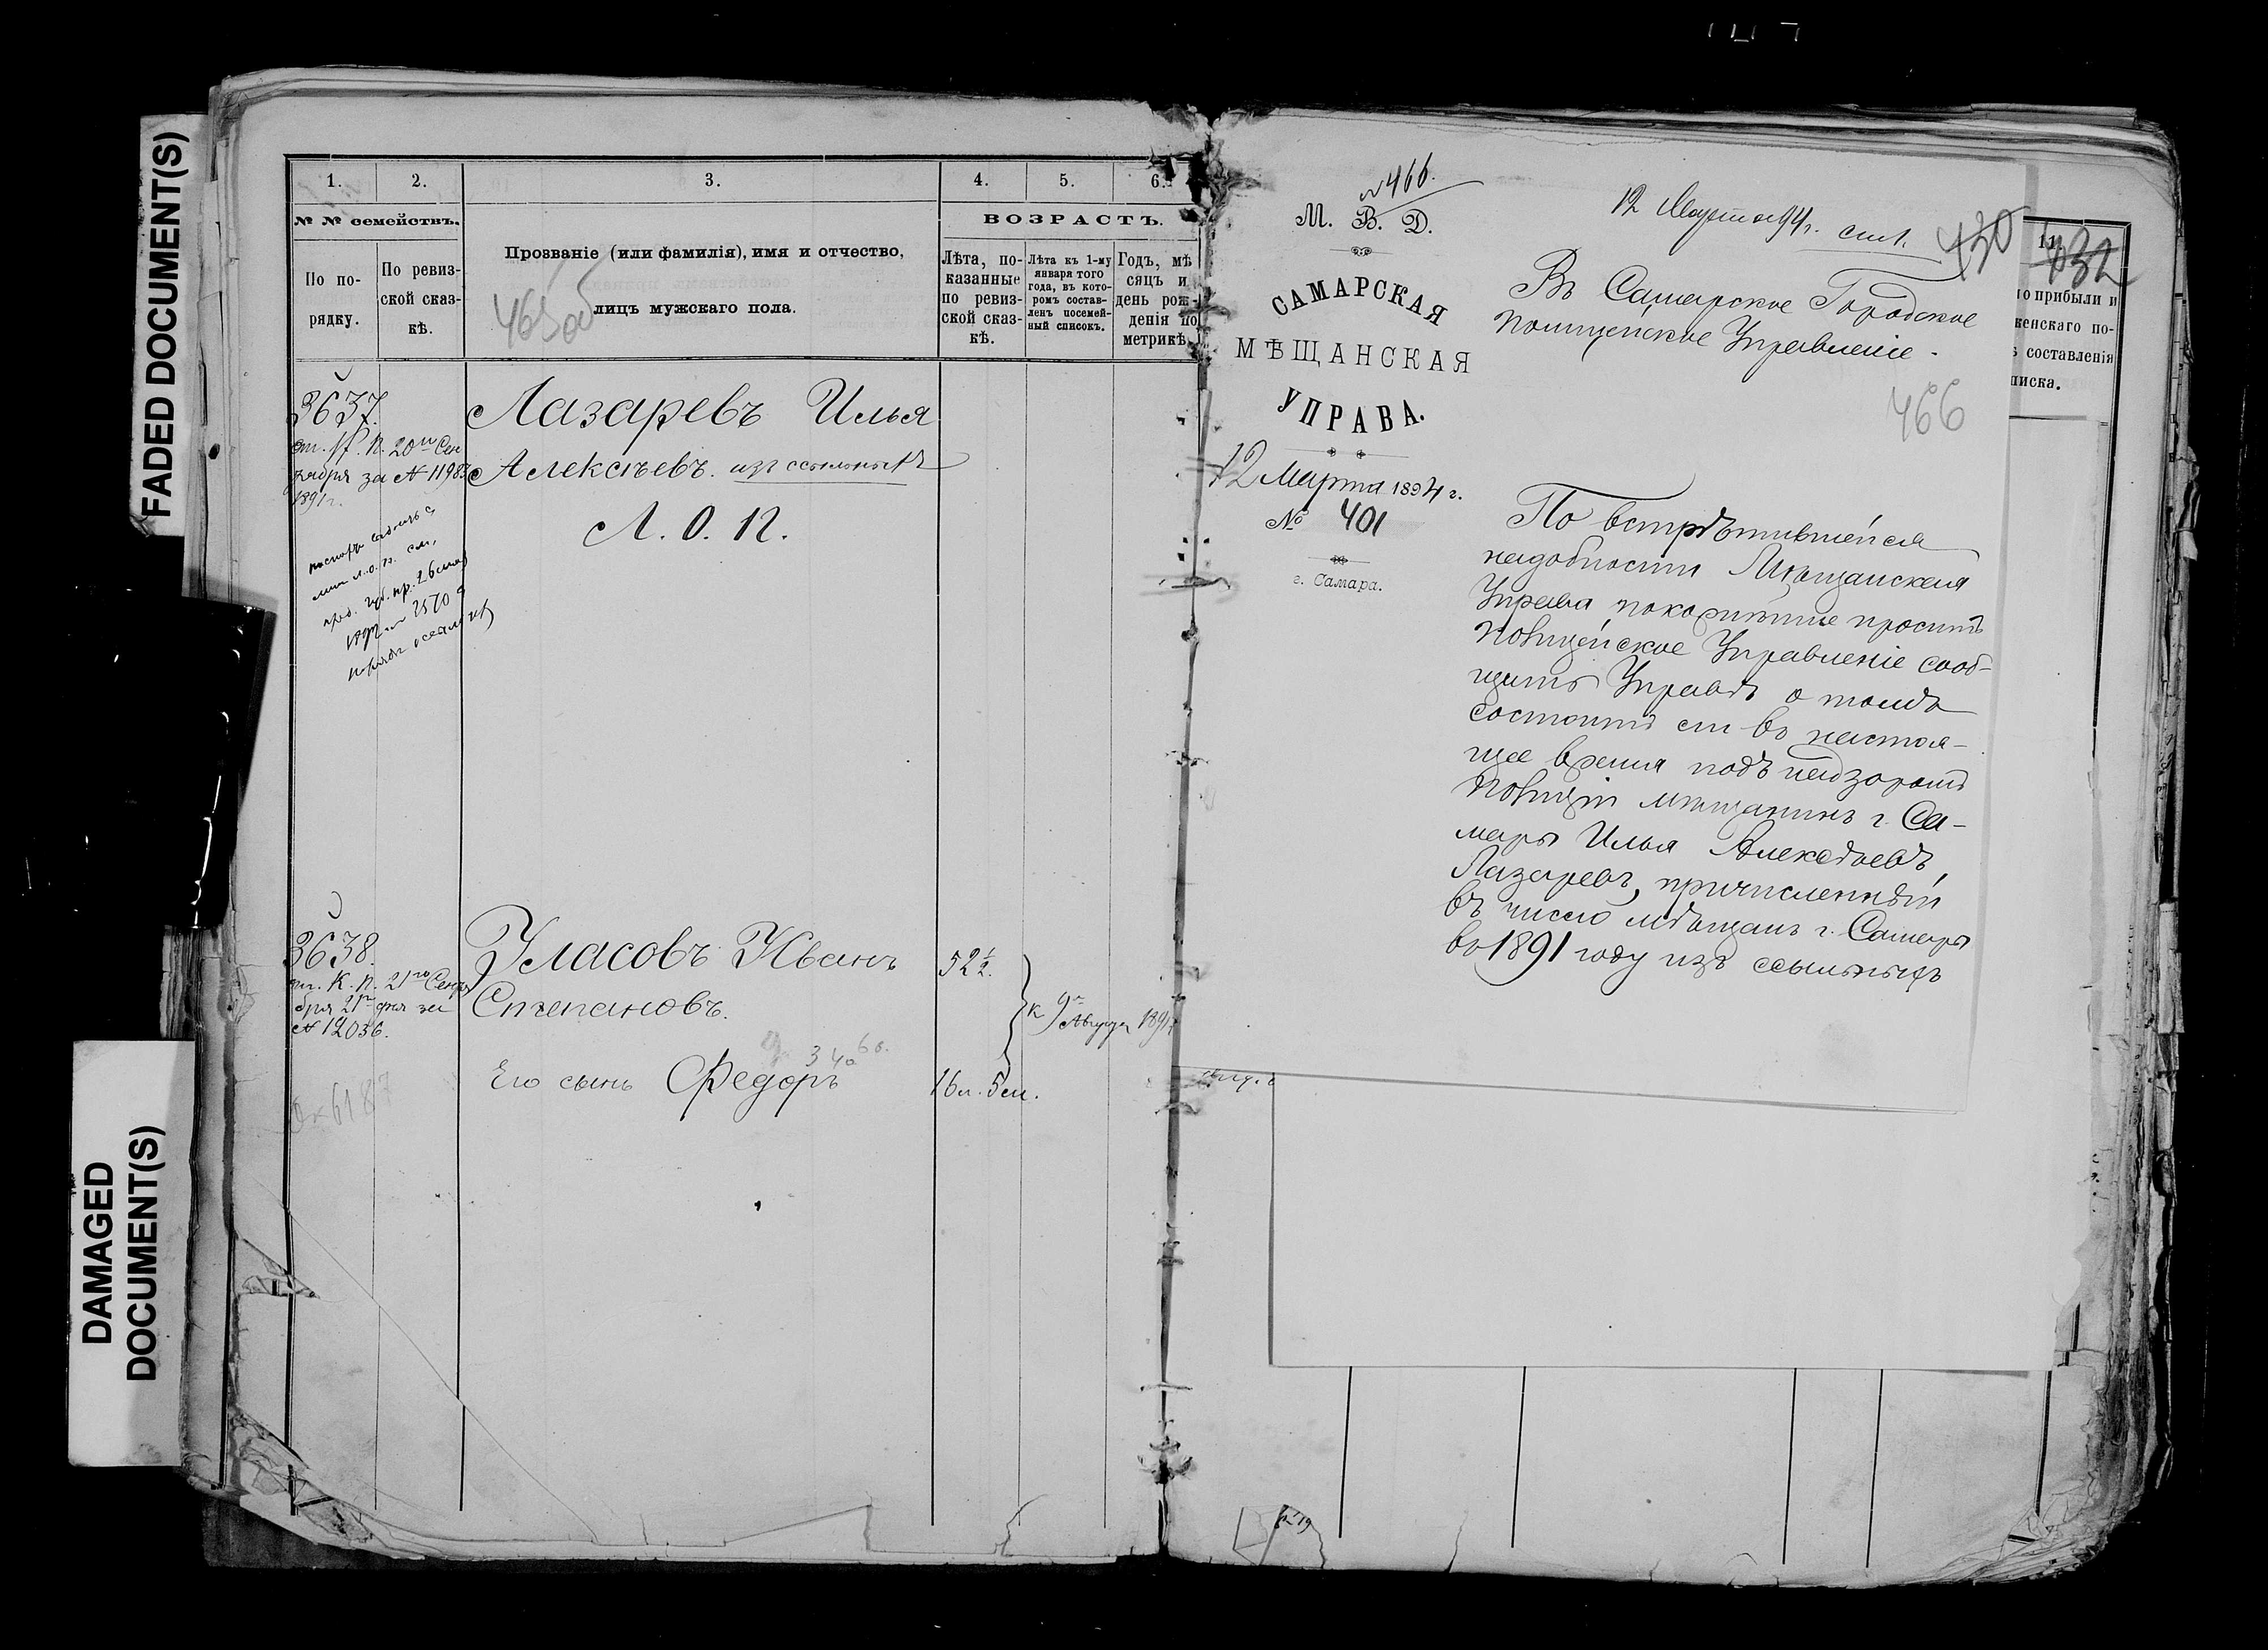 FADED DOCUMENT(S)
DAMAGED
DOCUMENT(S)
1. 2. 3. 4. 5. 6.
№ № семействъ.
По по-
рядку.
По ревиз-
ской сказ-
кѣ.
Прозваніе (или фамилія), имя и отчество,
лицъ мужскаго пола.
465 об
ВОЗРАСТЪ.
Лѣта, по-
казанные
по ревиз-
ской сказ-
кѣ.
Лѣта къ 1-му
января того
года, въ кото-
ромъ состав-
ленъ посемей-
ный списокъ.
Годъ, мѣ
сяцъ и
день рож-
денія по
метрикѣ.
3637.
20го Сен
тября за № 11983
1891 г.
Лазаревъ Илья
Алексѣевъ. изъ ссыльныхъ
Л. О. П.
3638.
К. п. 21го Сентя
бря 21го дня за
№ 12036.
Власовъ Иванъ
Степановъ.
52 ½.
к 9
Августа 1891
Его сынъ Федоръ
16 л. 5 м.
6187
№ 466.
М. В. Д.
САМАРСКАЯ
МѢЩАНСКАЯ
УПРАВА.
12 Марта 1894 г.
№ 401
г. Самара.
12 Марта 94 г.
430
466
Въ Самарское Городское
Полицейское Управленіе.
По встрѣтившейся
надобности Мѣщанская
Управа покорнѣйше проситъ
Полицейское Управленіе сооб-
щить Управѣ о томъ
состоитъ ли въ настоя-
щее время подъ надзоромъ
Полиціи мѣщанинъ г. Са-
мары Илья Алексѣевъ
Лазаревъ, причисленный
въ число мѣщанъ г. Самары
въ 1891 году изъ ссыльныхъ
11.
432
о прибыли и
женскаго по-
составленія
писка.